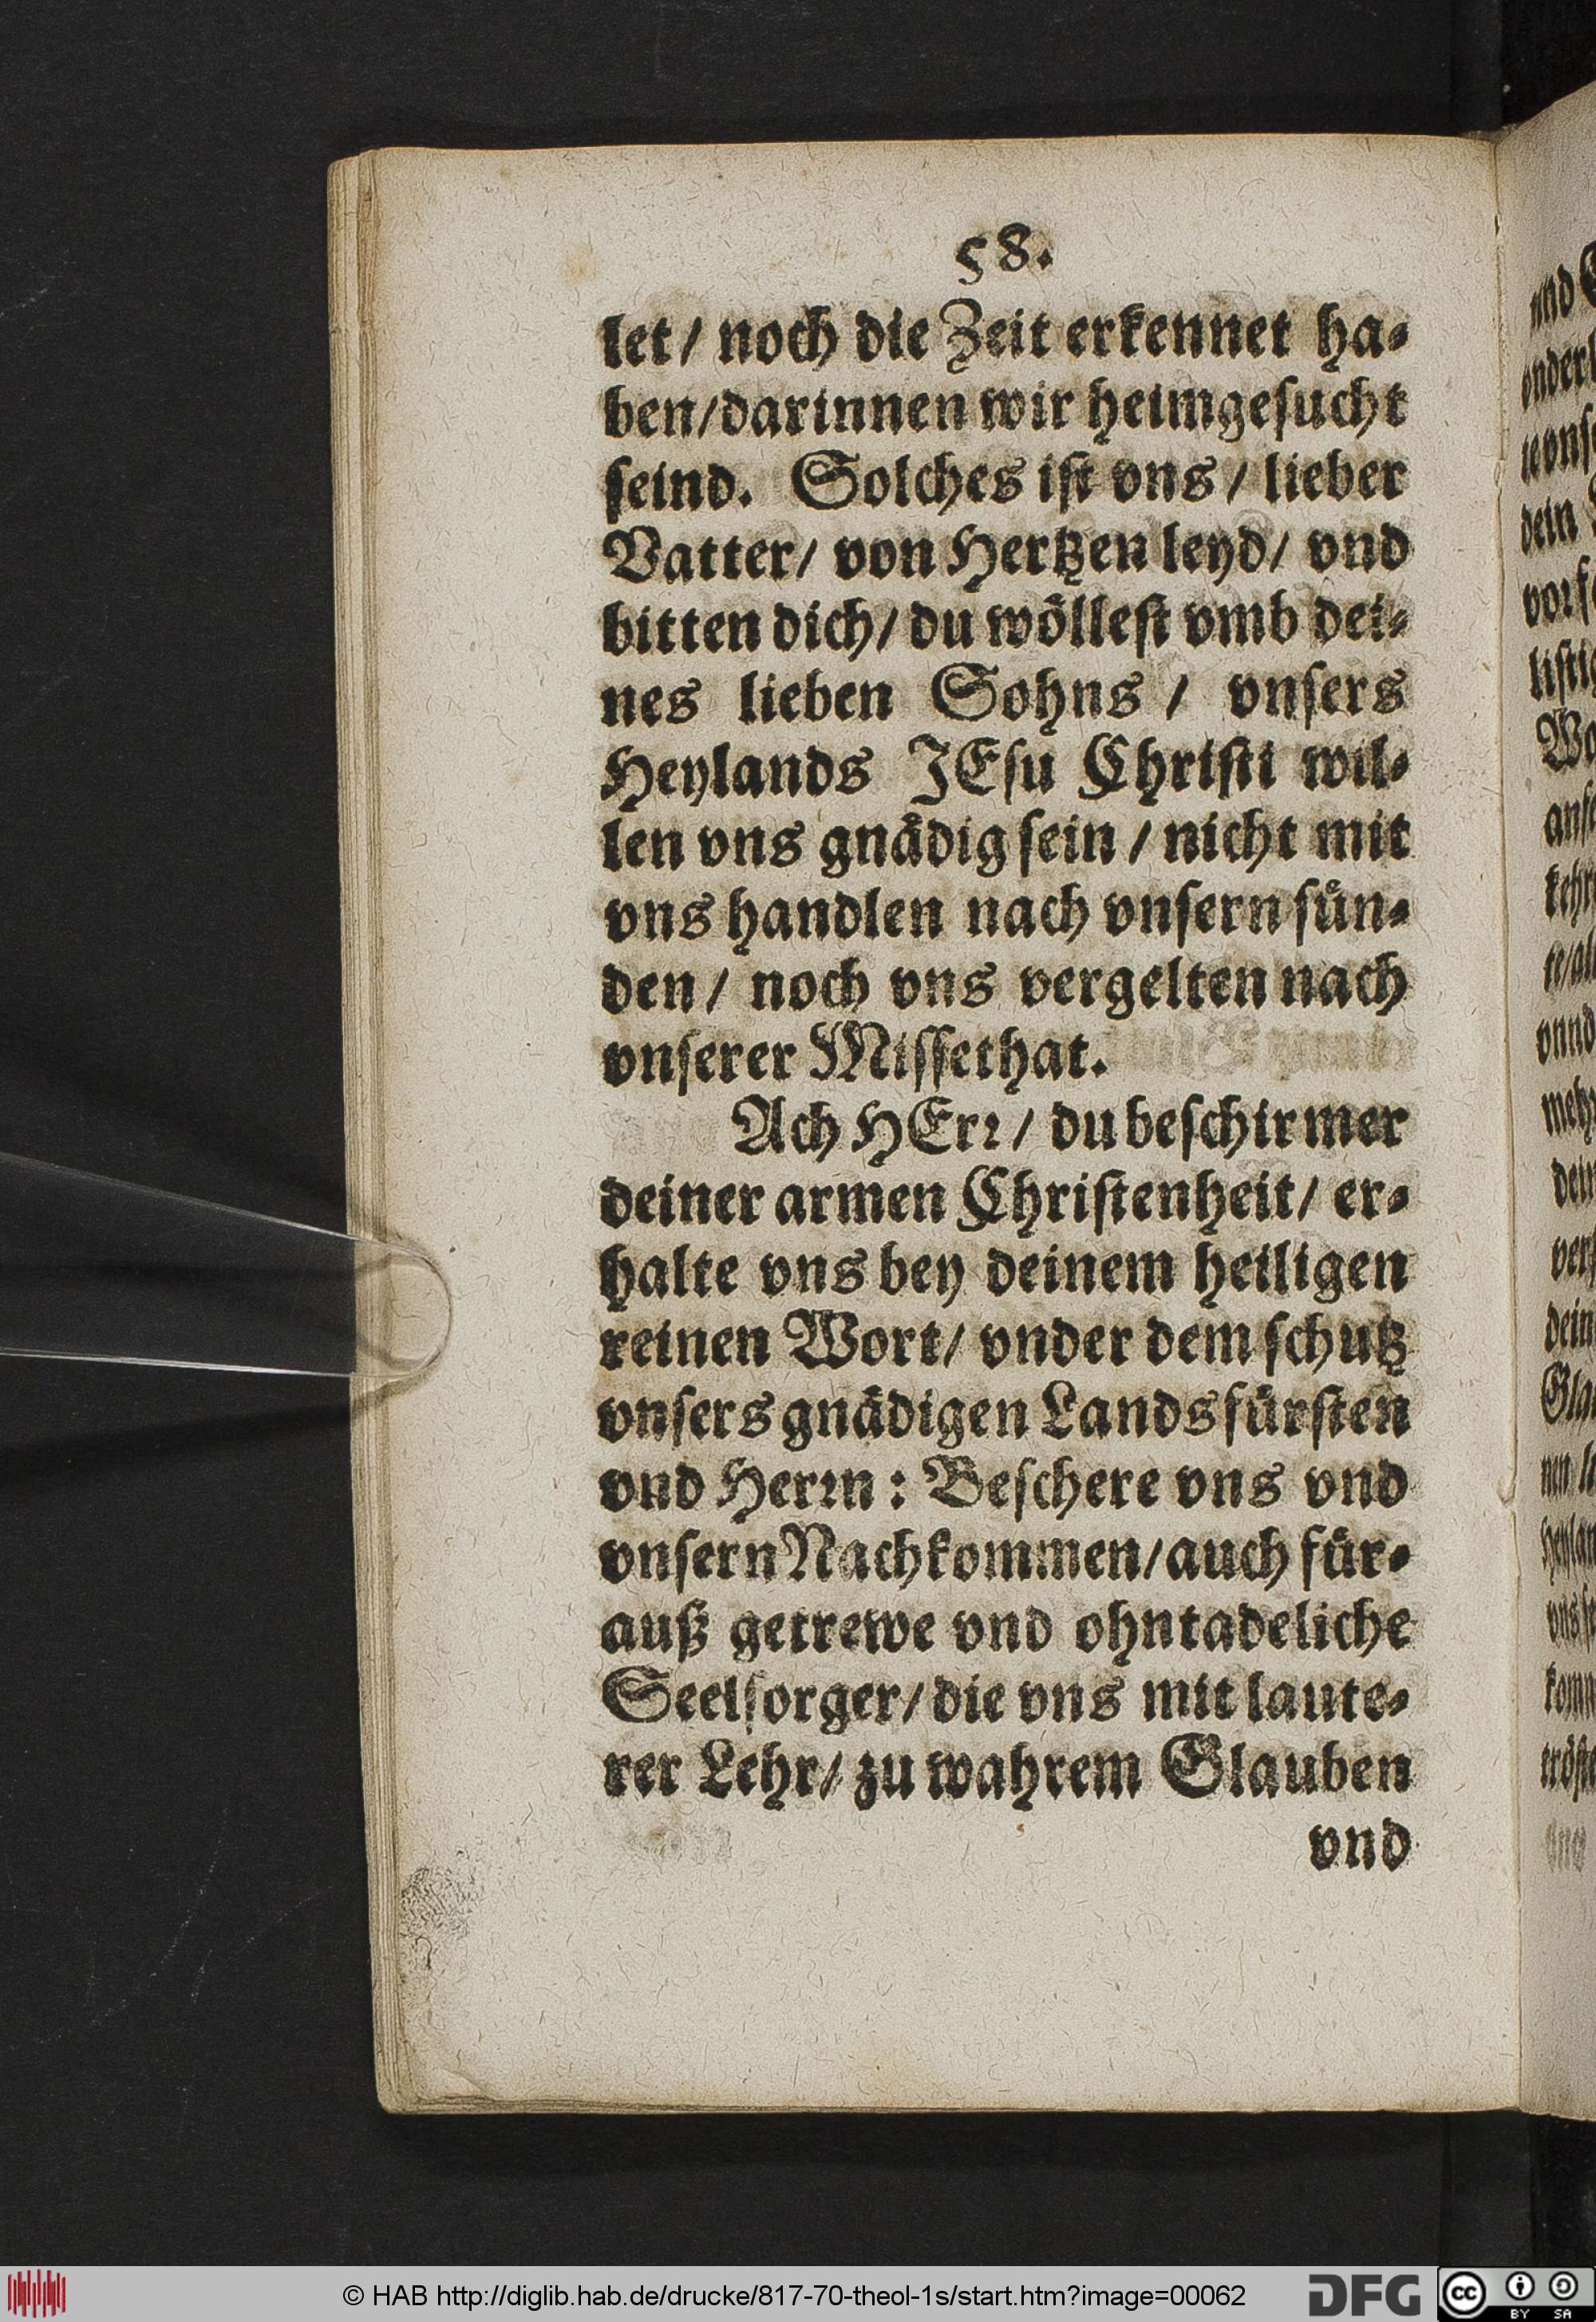 58.
let/ noch die Zeit erkennet ha⸗
ben/darinnen wir heimgesucht
seind. Solches ist vns/ lieber
Vatter/ von Hertzen leyd/ vnd
bitten dich/ du wöllest vmb dei⸗
nes lieben Sohns / vnsers
Heylands JEsu Christi wil⸗
len vns gnädig sein / nicht mit
vns handlen nach vnsern sün⸗
den/ noch vns vergelten nach
vnserer Missethat.
Ach HErꝛ/ du beschirmer
deiner armen Christenheit/ er⸗
halte vns bey deinem heiligen
reinen Wort/ vnder dem schutz
vnsers gnädigen Landsfürsten
vnd Herꝛn: Beschere vns vnd
vnsern Nachkommen/auch für⸗
auß getrewe vnd ohntadeliche
Seelsorger/die vns mit laute⸗
rer Lehr/ zu wahrem Glauben
vnd
© HAB http://diglib.hab.de/drucke/817-70-theol-1s/start.htm?image=00062
DFG
cc
BY SA